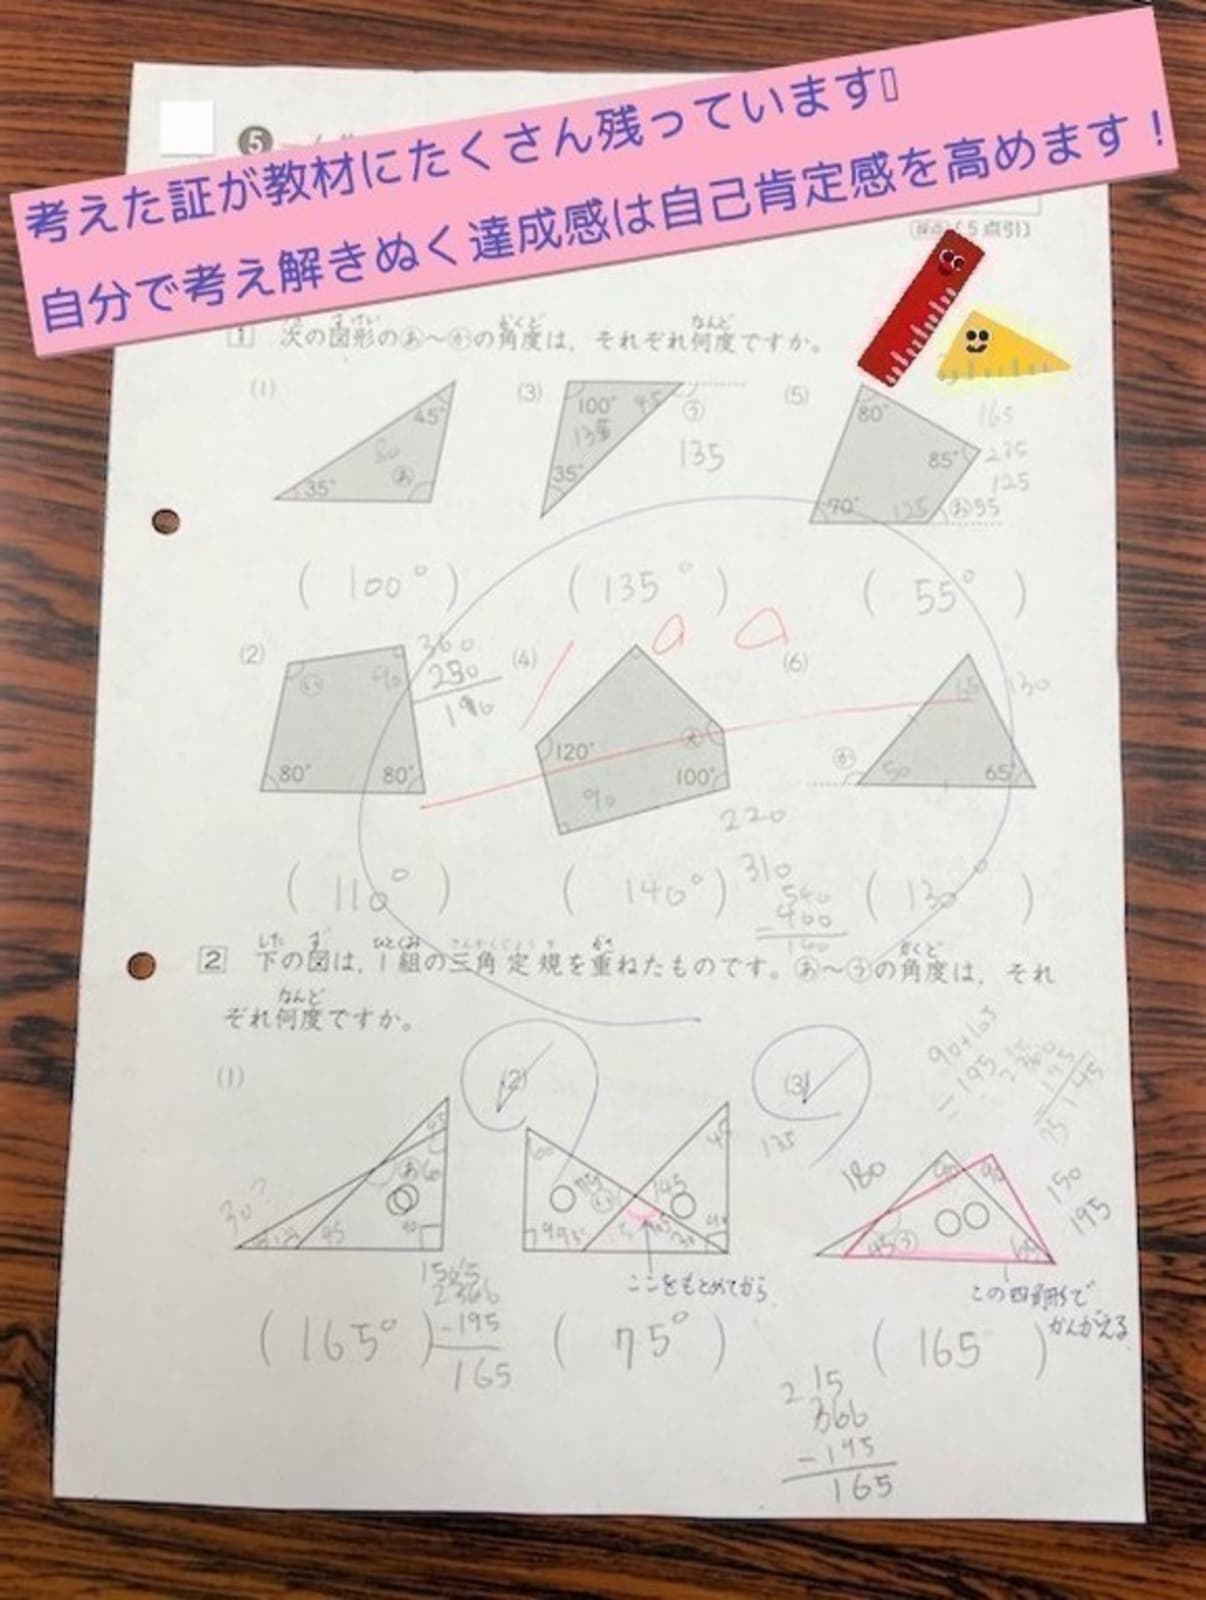 考えた証が教材にたくさん残っています
自分で考え解きぬく達成感は自己肯定感を高めます！
5
5点引〕
1 次の図形のあ〜かの角度は，それぞれ何度ですか。
(1) (3) (5)
45° 35° あ
100° 35° 45 う 135
80° 85° 70° 125 お 55
165
235
125
( 100° ) ( 135° ) ( 55° )
(2) (4) (6)
い 90 80° 80°
360
250
120° え 100° 90
か 50 65° 130
220
310
540
-400
140
( 110° ) ( 140° ) ( 130 )
2 下の図は，1組の三角定規を重ねたものです。あ〜うの角度は，それ
ぞれ何度ですか。
(1) (2) (3)
あ 60 45 30?
60 75 い 45 30
135
180 90 45 う
150
195
ここをもとめてから
この四角形で
かんがえる
-195
165
( 165° ) ( 75° ) ( 165 )
-195
165